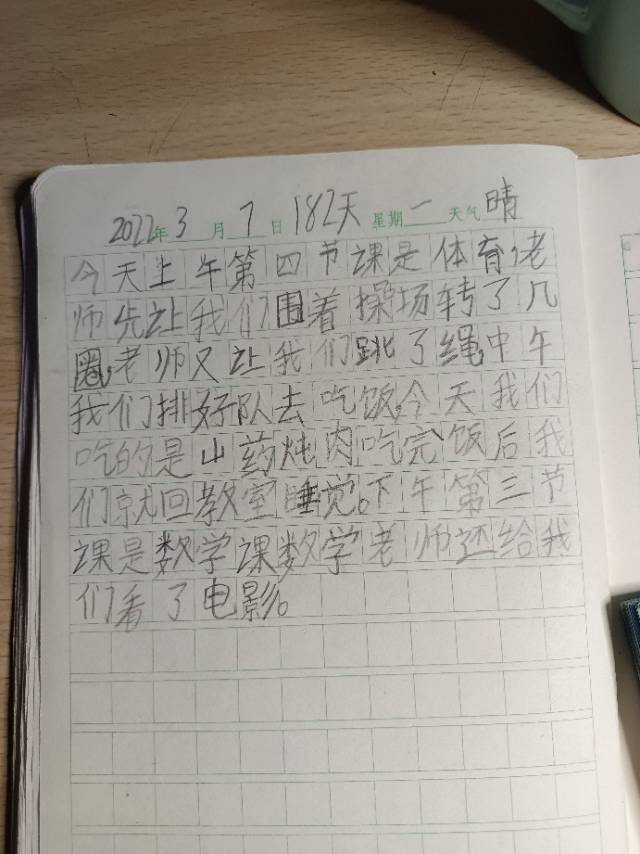 2022年3月7日 182天 星期一 天气晴
今天上午第四节课是体育,老
师先让我们围着操场转了几
圈,老师又让我们跳了绳,中午
我们排好队去吃饭,今天我们
吃的是山药炖肉,吃完饭后我
们就回教室睡觉。下午第三节
课是数学课数学老师还给我
们看了电影。